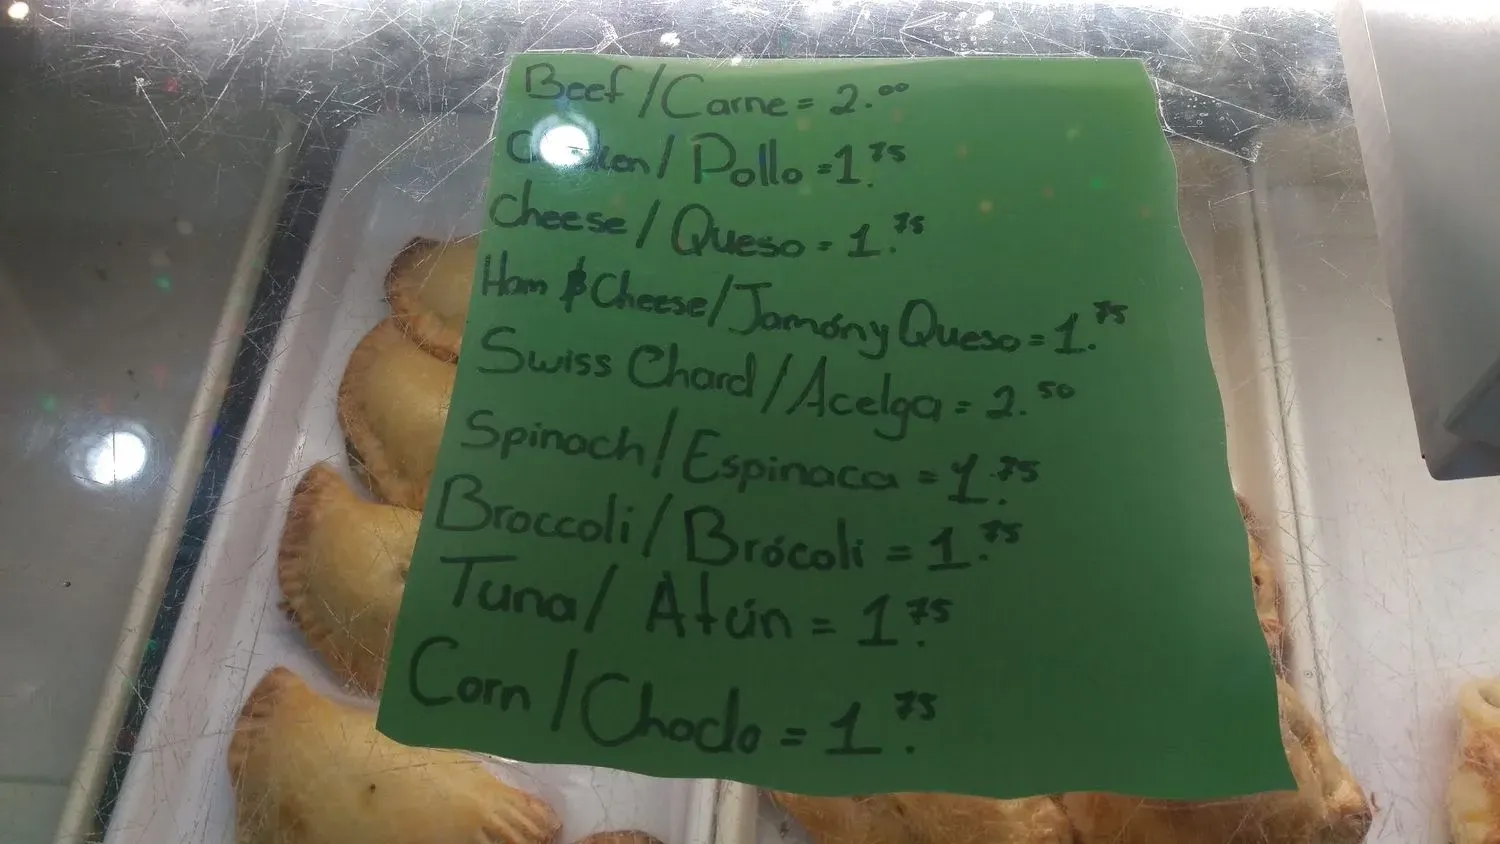 Beef / Carne = 2.00
Chicken / Pollo = 1.75
Cheese / Queso = 1.75
Ham & Cheese / Jamón y Queso = 1.75
Swiss Chard / Acelga = 2.50
Spinach / Espinaca = 1.75
Broccoli / Brócoli = 1.75
Tuna / Atún = 1.75
Corn / Choclo = 1.75